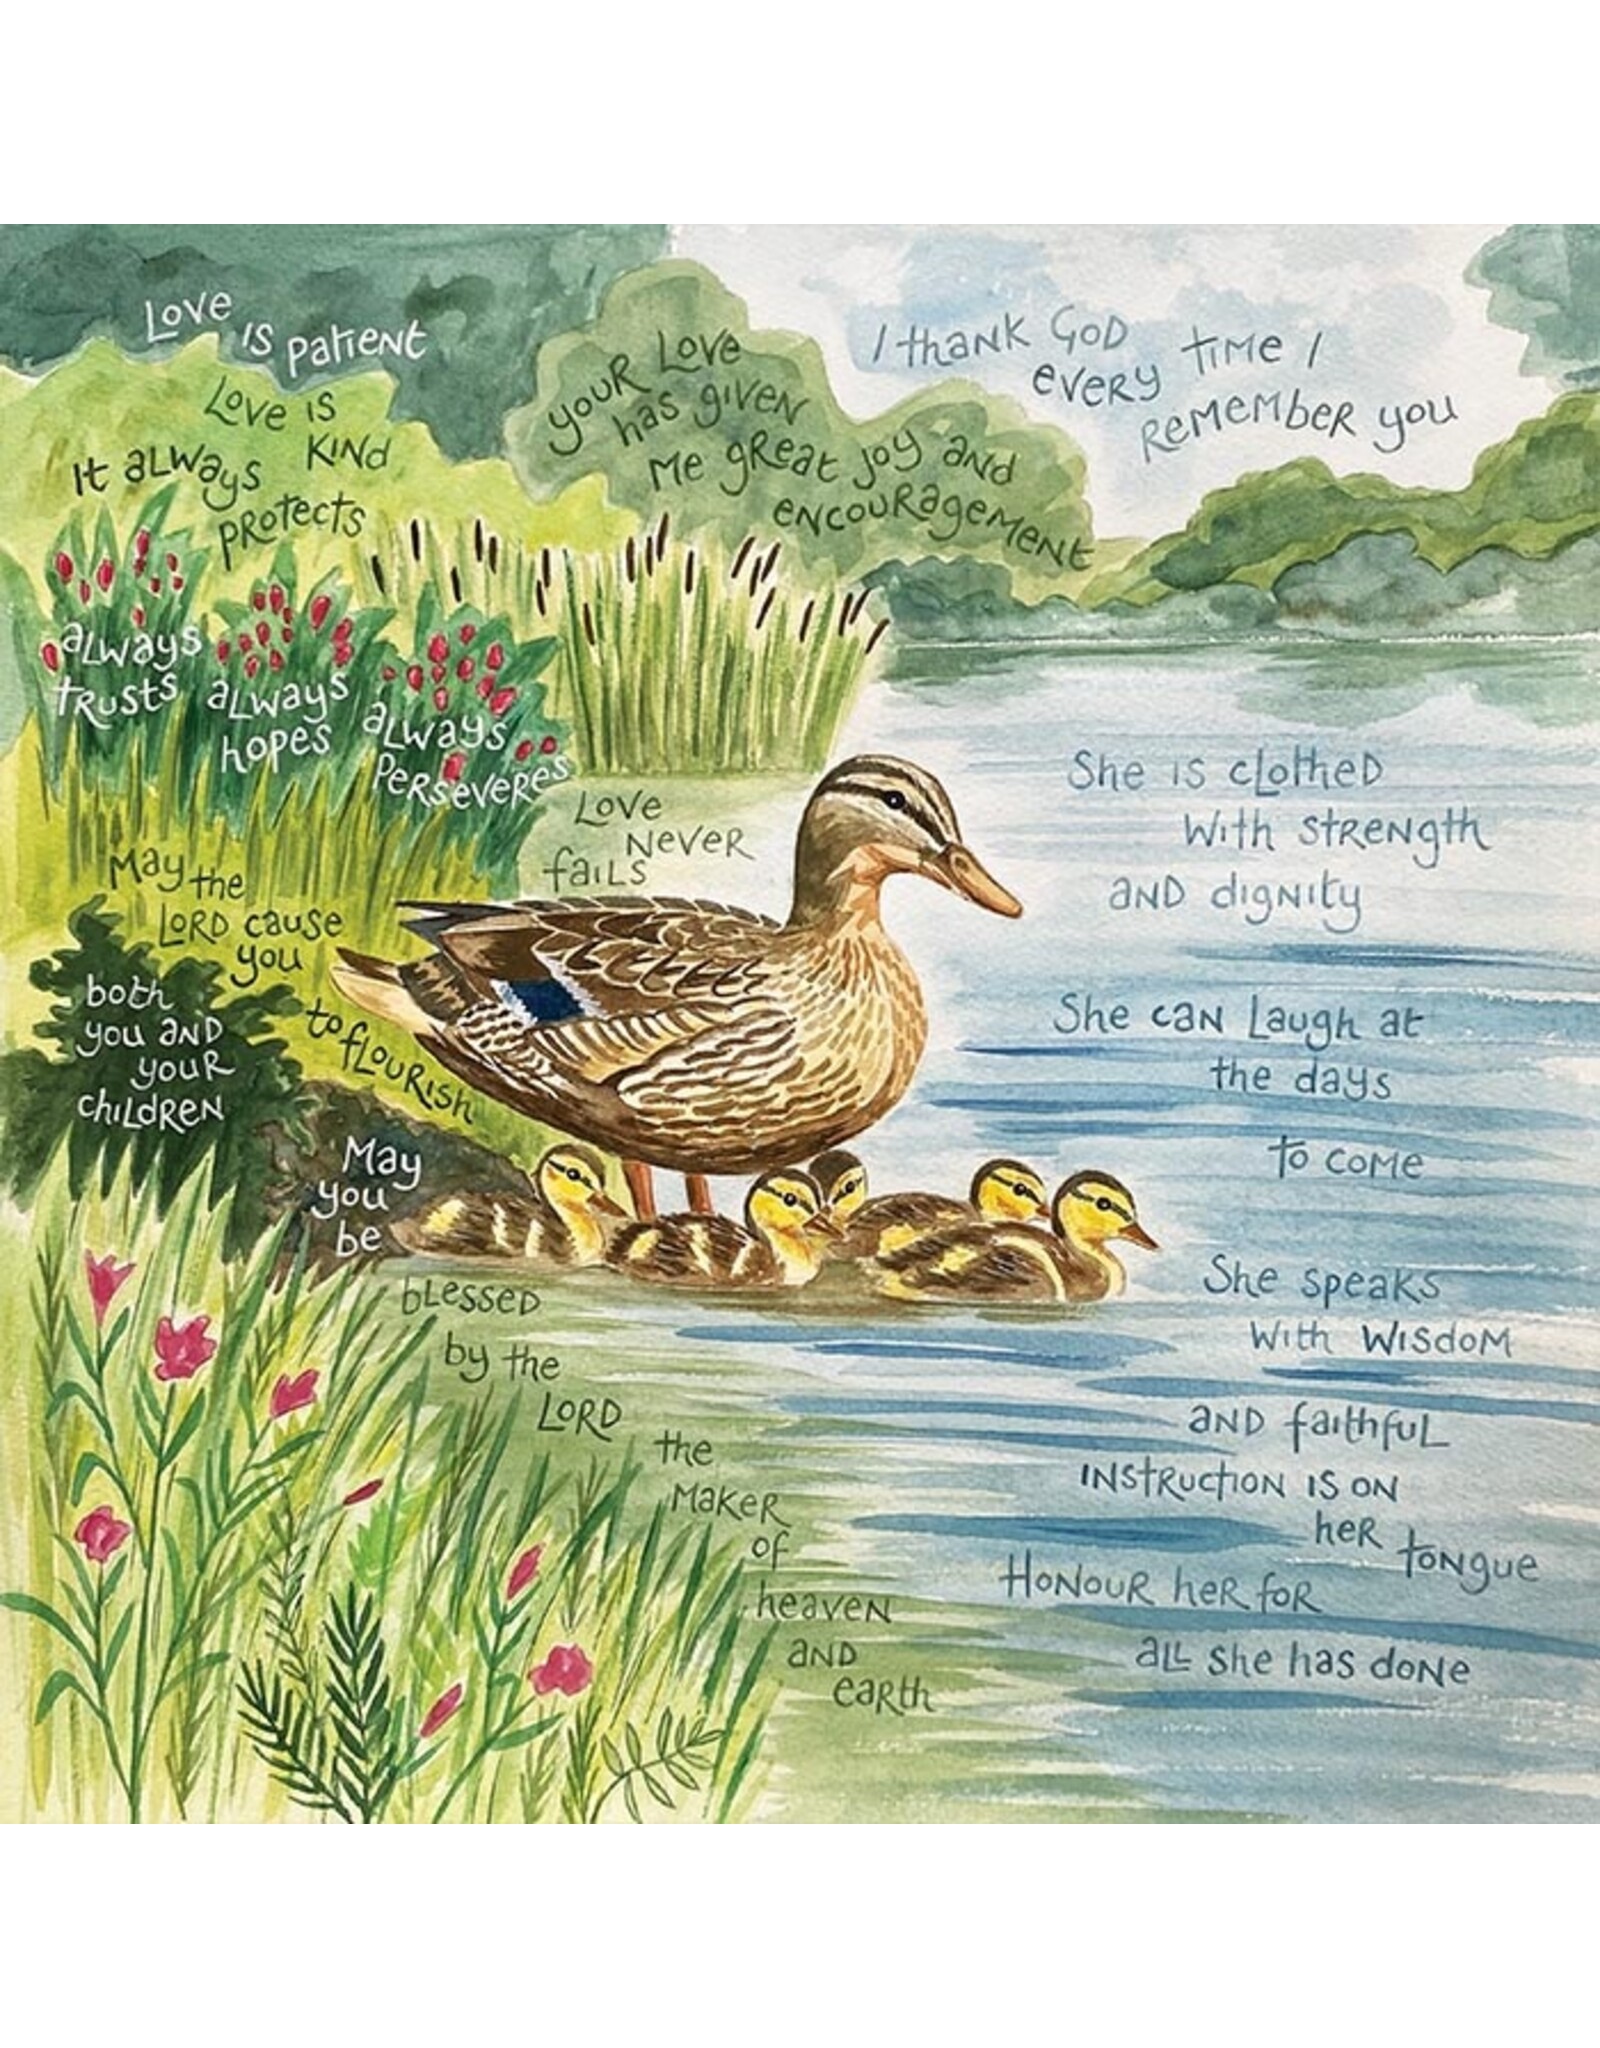 Love
is patient
Love is
kind
It always
protects
always
trusts
always
hopes
always
perseveres
Love
never
fails
your love
has given
me great joy and
encouragement
I thank God
every time I
remember you
May the
LORD cause
you
to flourish
both
you and
your
children
May
you
be
blessed
by the
LORD
the
Maker
of
heaven
and
earth
She is clothed
with strength
and dignity
She can laugh at
the days
to come
She speaks
with wisdom
and faithful
instruction is on
her
tongue
Honour her for
all she has done